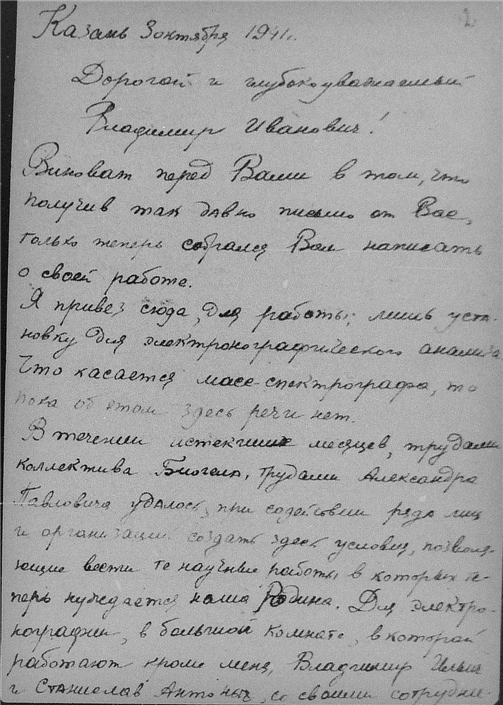 2
Казань 3 октября 1941 г.
Дорогой и глубокоуважаемый
Владимир Иванович!
Виноват перед Вами в том, что
получив так давно письмо от Вас,
только теперь собрался Вам написать
о своей работе.
Я привез сюда, для работы, лишь уста-
новку для электронографического анализа.
Что касается масс-спектрографа, то
пока об этом здесь речи нет.
В течении истекших месяцев, трудами
коллектива Биогела, трудами Александра
Павловича удалось, при содействии ряда лиц
и организаций создать здесь условия, позволя-
ющие вести те научные работы в которых те-
перь нуждается наша Родина. Для электро-
нографии, в большой комнате, в которой
работают кроме меня, Владимир Ильич
и Станислав Антоныч, со своими сотрудни-